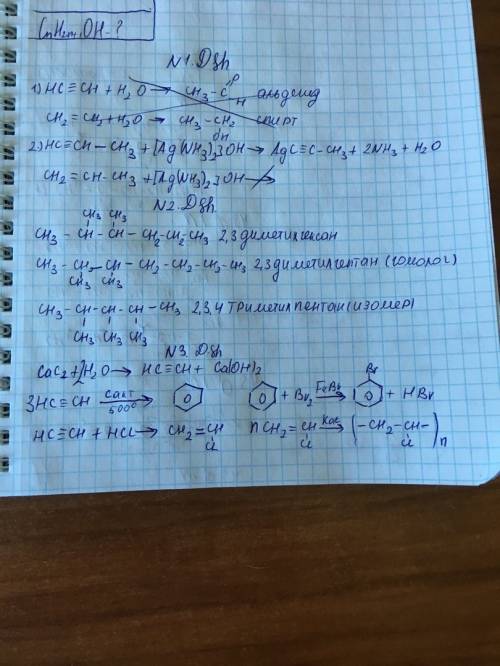 CnH2n+1OH-?
N1. D§h
1) HC≡CH + H2O → CH3-C O H альдегид
CH2=CH2+H2O → CH3-CH2 OH спирт
2) HC≡CH-CH3 + [Ag(NH3)2]OH → AgC≡C-CH3 + 2NH3 + H2O
CH2=CH-CH3 + [Ag(NH3)2]OH →
N2. D§h
CH3 CH3
CH3 - CH - CH - CH2-CH2-CH3 2,3 диметилгексан
CH3 - CH - CH - CH2 - CH2-CH2-CH3 2,3 диметилгептан (гомолог)
CH3 CH3
CH3 - CH - CH - CH - CH3 2,3,4 триметилпентан (изомер)
CH3 CH3 CH3
N3. D§h
CaC2 + 2H2O → HC≡CH + Ca(OH)2
Br
3HC≡CH Cакт 500° → + Br2 FeBr → + HBr
HC≡CH + HCl → CH2=CH Cl nCH2=CH Cl кат → (-CH2-CH- Cl)n